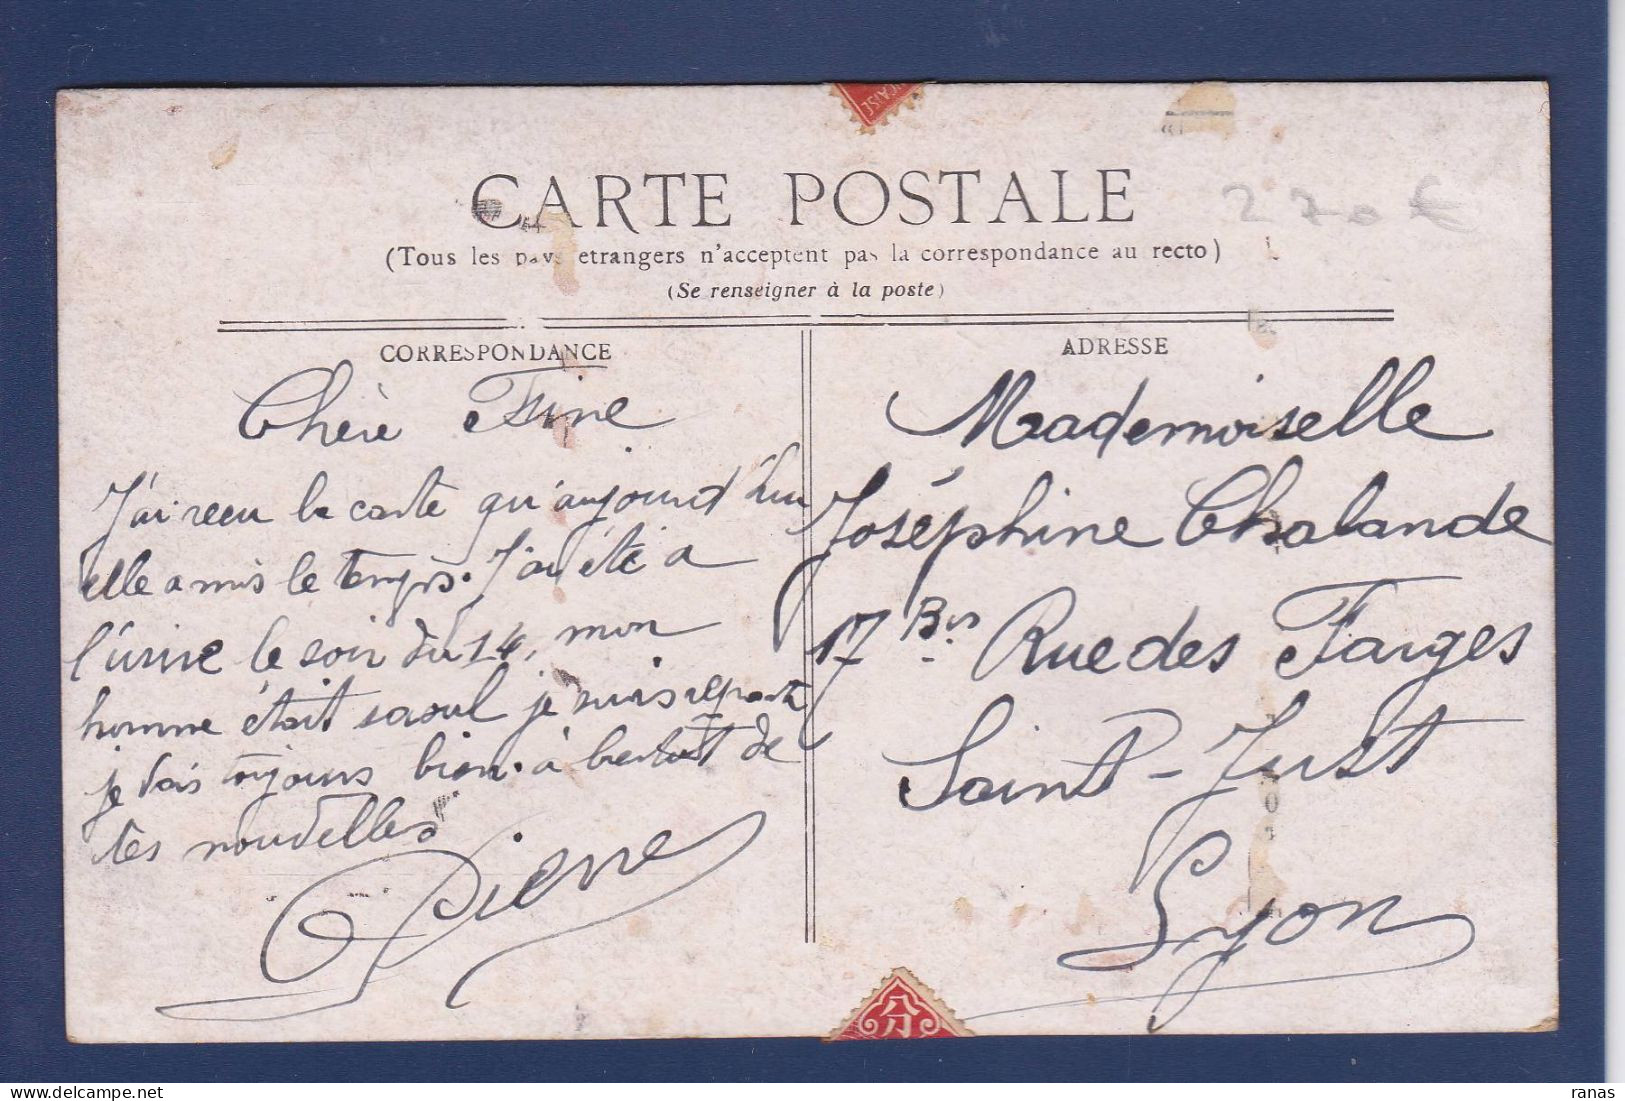 ÇAISE
CARTE POSTALE
270€
(Tous les pays etrangers n'acceptent pas la correspondance au recto)
(Se renseigner à la poste)
CORRESPONDANCE
Chère Fine
J'ai recu la carte qu'aujourd'hui
elle a mis le temps. J'ai été a
l'usine le soir du 14, mon
homme était saoul je suis reparti
je vais toujours bien. à bientot de
tes nouvelles
Pierre
ADRESSE
Mademoiselle
Joséphine Chalande
17 Bis Rue des Farges
Saint-Just
Lyon
分
ranas